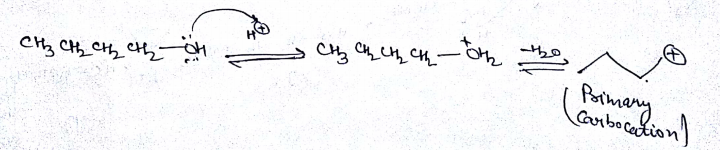 CH₃ CH₂ CH₂ CH₂—ÖH H⊕ ⇌ CH₃ CH₂ CH₂ CH₂—⁺ÖH₂ −H₂O ⇌ ⊕
(Primary
Carbocation)